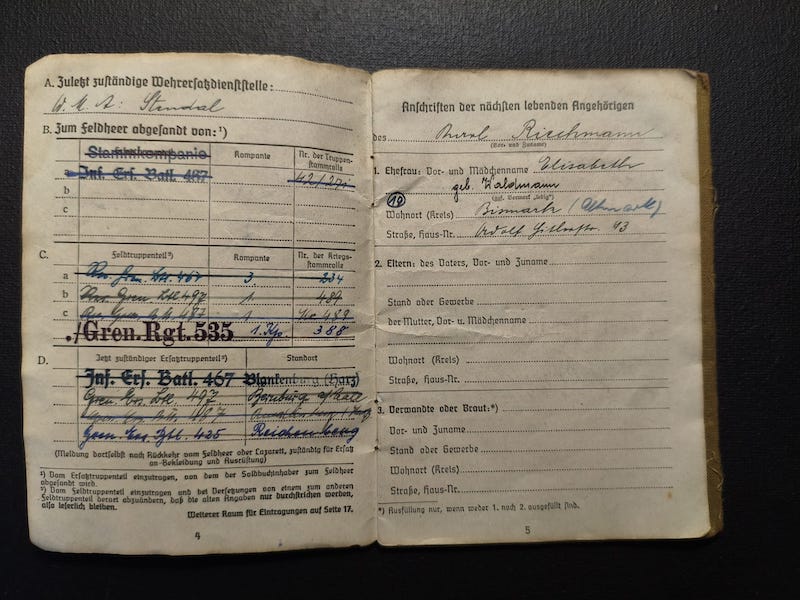 A. Zuletzt zuständige Wehrersatzdienststelle:
W. M. A: Stendal
B. Zum Feldheer abgesandt von:¹)
Stammkompanie Kompanie Nr. der Truppen-
stammrolle
a Inf. Ers. Batl. 487
b
c
C. Feldtruppenteil²) Kompanie Nr. der Kriegs-
stammrolle
a 3. 234
b 497 1 489
c 1 489
./Gren.Rgt.535 1. Kp. 388
D. Jetzt zuständiger Ersatztruppenteil²) Standort
Inf. Ers. Batl. 467 Blankenburg (Harz)
Gren. Ers. Btl. 497 Bernburg a/Saale
Gren. Ers. Btl. 425
(Meldung dortselbst nach Rückkehr vom Feldheer oder Lazarett, zuständig für Ersatz
an Bekleidung und Ausrüstung)
¹) Vom Ersatztruppenteil einzutragen, von dem der Soldbuchinhaber zum Feldheer
abgesandt wird.
²) Vom Feldtruppenteil einzutragen und bei Versetzungen von einem zum anderen
Feldtruppenteil derart abzuändern, daß die alten Angaben nur durchstrichen werden,
also leserlich bleiben.
Weiterer Raum für Eintragungen auf Seite 17.
4
Anschriften der nächsten lebenden Angehörigen
des
(Vor- und Zuname)
1. Ehefrau: Vor- und Mädchenname Elisabeth
geb. Waldmann
(ggf. Vermerk „ledig")
10
Wohnort (Kreis) Bismark (Altmark)
Straße, Haus-Nr. Adolf Hitlerstr. 43
2. Eltern: des Vaters, Vor- und Zuname
Stand oder Gewerbe
der Mutter, Vor- u. Mädchenname
Wohnort (Kreis)
Straße, Haus-Nr.
3. Verwandte oder Braut:*)
Vor- und Zuname
Stand oder Gewerbe
Wohnort (Kreis)
Straße, Haus-Nr.
*) Ausfüllung nur, wenn weder 1. noch 2. ausgefüllt sind.
5